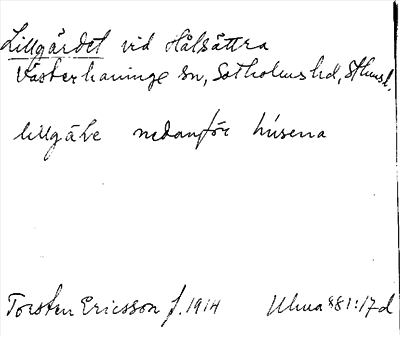 Lillgärdet vid Hålsättra
Västerhaninge sn, Sotholms hd, Sthms l.
lillgäḷe nedanför húsena
Torsten Ericsson f. 1914 Ulma 881:17d